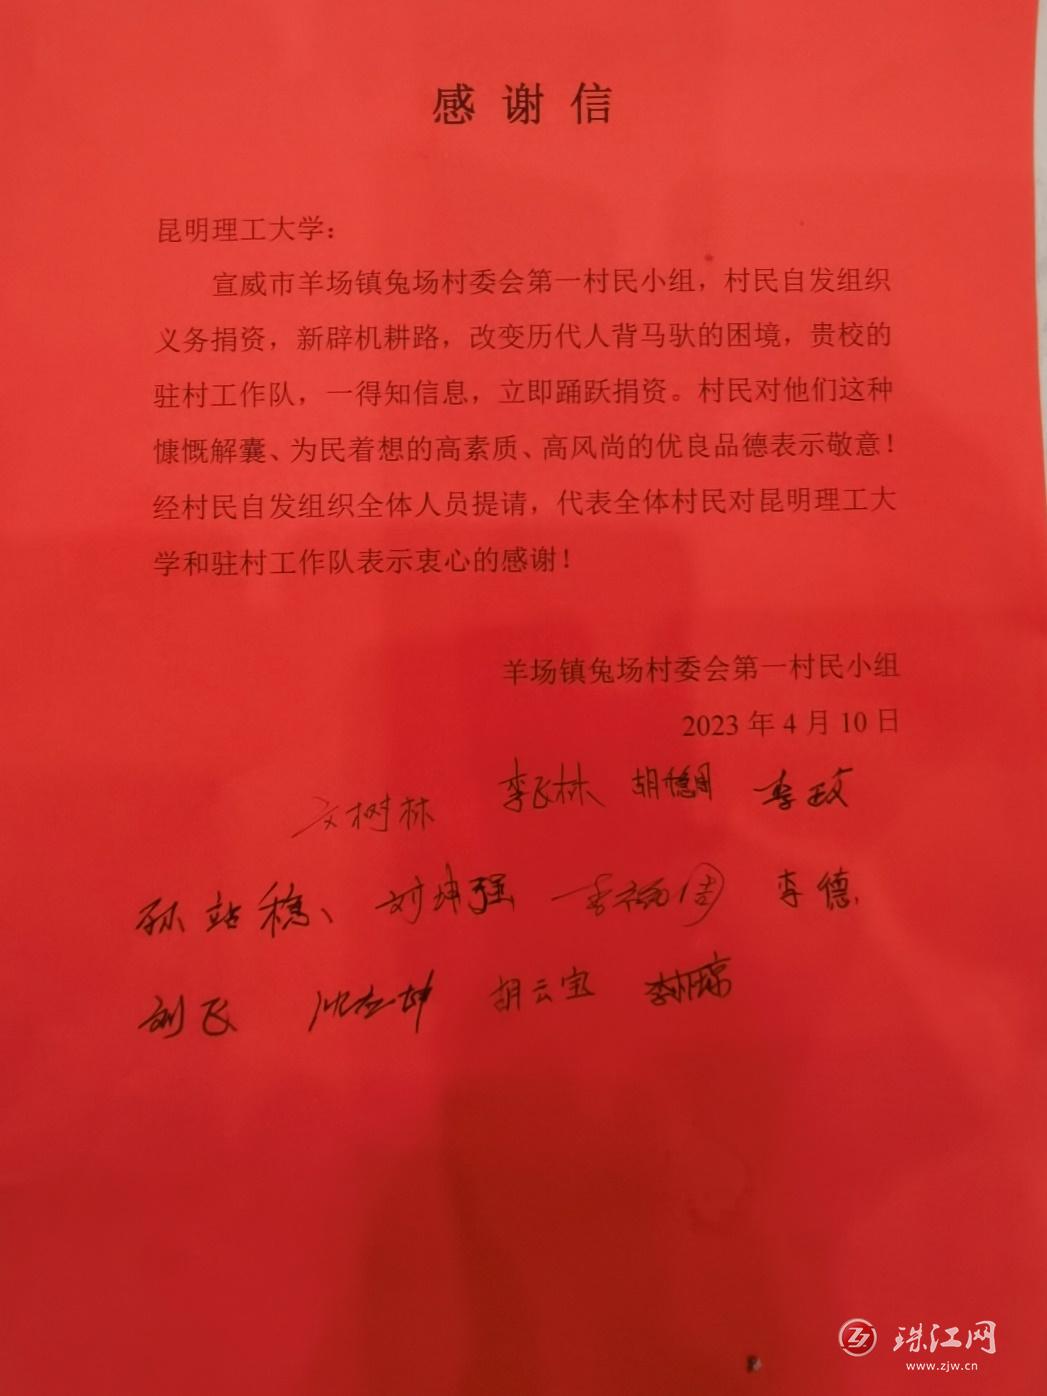 感谢信
昆明理工大学：
宣威市羊场镇兔场村委会第一村民小组，村民自发组织
义务捐资，新辟机耕路，改变历代人背马驮的困境，贵校的
驻村工作队，一得知信息，立即踊跃捐资。村民对他们这种
慷慨解囊、为民着想的高素质、高风尚的优良品德表示敬意！
经村民自发组织全体人员提请，代表全体村民对昆明理工大
学和驻村工作队表示衷心的感谢！
羊场镇兔场村委会第一村民小组
2023 年 4 月 10 日
文树林 李飞林 胡德周 李玟
孙站稳、 刘坤强 李福周 李德
刘飞 沈应坤 胡云宝
珠江网
www.zjw.cn